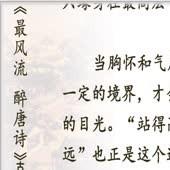 身在最高层
当胸怀和气
一定的境界，才
的目光。“站得
远”也正是这个
《最风流 醉唐诗》